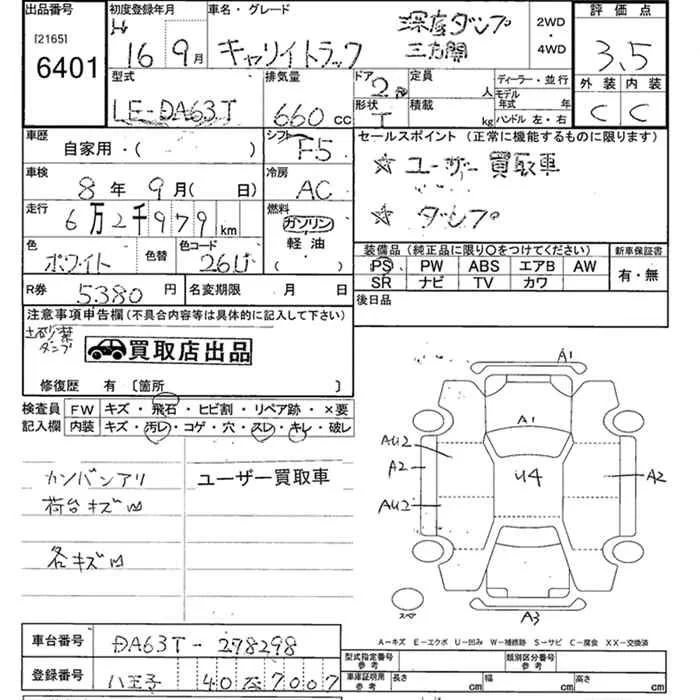 出品番号 初度登録年月 車名・グレード 評価点
[2165] H 深底ダンプ 2WD
6401 16 9月 キャリイトラック 三方開 ・ 4WD 3.5
型式 排気量 ドア 定員 ディーラー・並行 外装 内装
2 人 モデル年式 年
LE-DA63T 660 cc 形状 積載 kg ハンドル 左・右 C C
T
車歴 シフト セールスポイント (正常に機能するものに限ります)
自家用・( ) F5 ☆ ユーザー買取車
車検 冷房
8年 9月( 日) AC
走行 燃料 ☆ ダンプ
6万2千979km ガソリン
色 色替 色コード 軽油 装備品(純正品に限り○をつけてください) 新車保証書
ホワイト 26U ( ) PS PW ABS エアB AW 有・無
R券 5380円 名変期限 月 日 SR ナビ TV カワ
注意事項申告欄(不具合内容等は具体的に記入して下さい) 後日品
土砂禁
ダンプ 買取店出品
修復歴 有 [箇所 ]
検査員 FW キズ・飛石・ヒビ割・リペア跡・×要
記入欄 内装 キズ・汚レ・コゲ・穴・スレ・キレ・破レ
カンバンアリ ユーザー買取車
荷台キズ凹
各キズ凹
A1
A1
AU2
A2 U4 A2
AU2
スペア A3
A-キズ E-エクボ U-凹み W-補修跡 S-サビ C-腐食 XX-交換済
車台番号 DA63T-278298
型式指定番号 参考 類別区分番号 参考
登録番号 八王子 40 7007
車庫証明用 参考 長さ cm 幅 cm 高さ cm